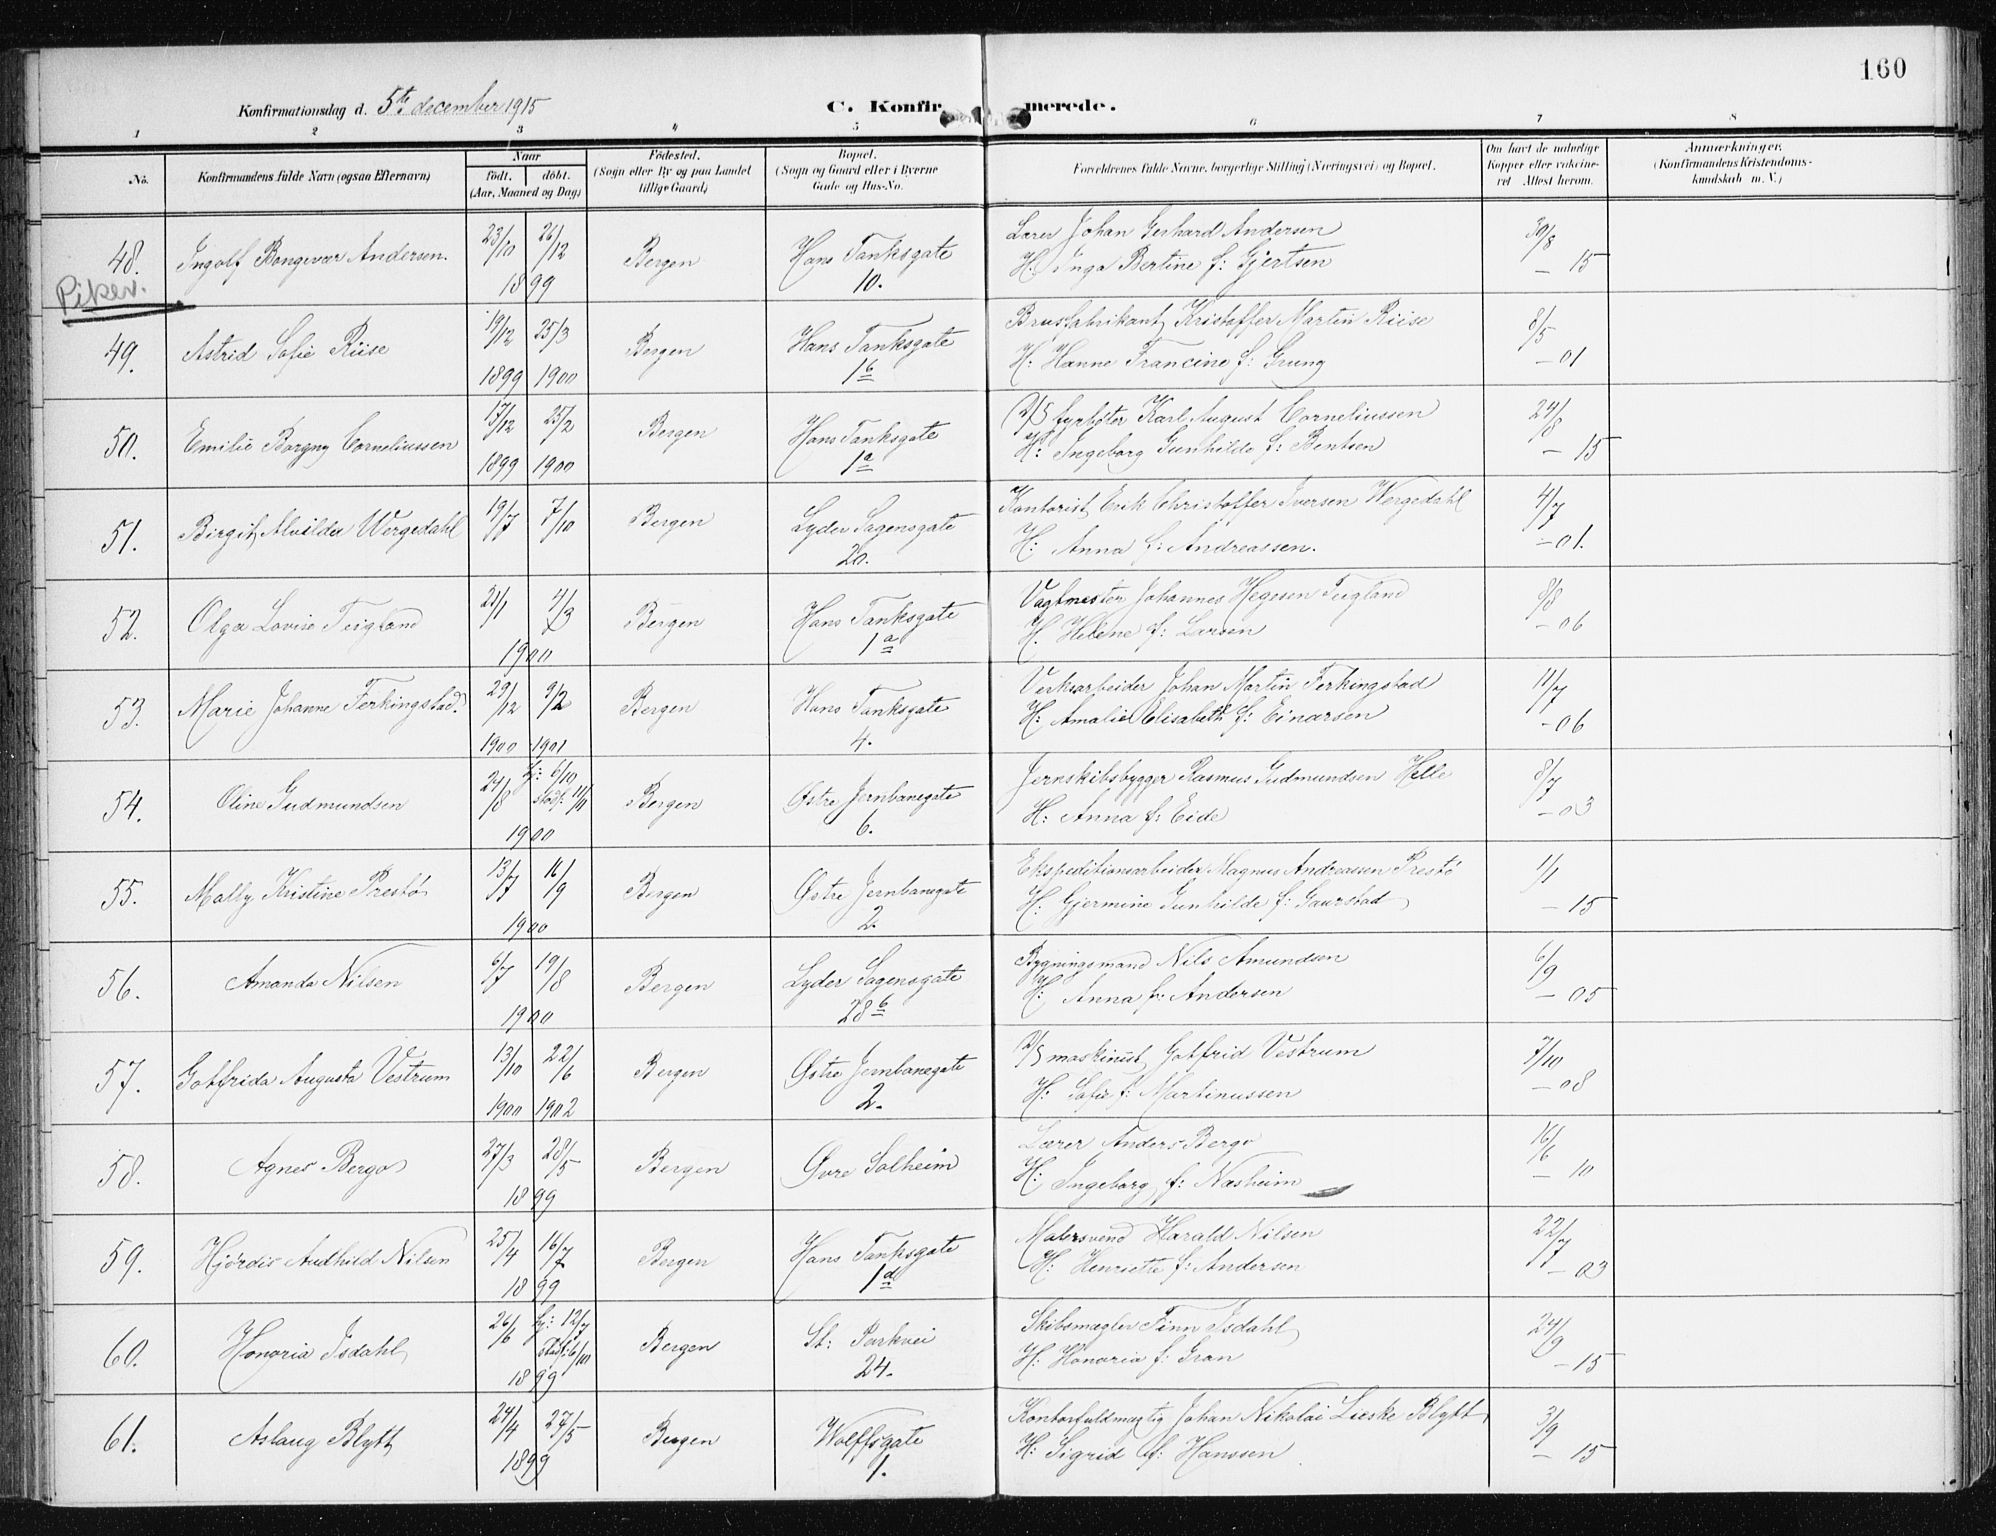 160
Konfirmationsdag d. 5te december 1915
C. Konfirmerede.
1 2 3 4 5 6 7 8
No.
Konfirmandens fulde Navn (ogsaa Efternavn)
Naar
födt. döbt.
(Aar, Maaned og Dag)
Födested.
(Sogn eller By og paa Landet
tillige Gaard)
Bopæl.
(Sogn og Gaard eller i Byerne
Gade og Hus-No.
Forældrenes fulde Navne, borgerlige Stilling (Næringsvei) og Bopæl.
Om havt de naturlige
Kopper eller vaccine-
ret Attest herom.
Anmærkninger.
(Konfirmandens Kristendoms-
kundskab m. V.)
48. Ingolf Bongevar Andersen. 23/10 26/12 1899 Bergen Hans Tanksgate 10.
Lærer Johan Gerhard Andersen
H: Inga Bertine f: Gjertsen
30/8 – 15
Piker.
49. Astrid Sofie Riise 19/12 1899 25/3 1900 Bergen Hans Tanksgate 1b
Brusfabrikant Kristoffer Martin Riise
H: Hanne Francine f: Grung
8/5 – 01
50. Emilie Borgny Corneliussen 17/12 1899 25/2 1900 Bergen Hans Tanksgate 1a
D/S fyrbøter Karl August Corneliussen
H: Ingeborg Gunhilde f: Bentsen
24/8 – 15
51. Birgit Alvilda Wergedahl 19/7 7/10 Bergen Lyder Sagensgate 20.
Kontorist Erik Christoffer Iversen Wergedahl
H: Anna f: Andreassen.
4/7 – 01.
52. Olga Lovise Teigland 21/1 4/3 1900 Bergen Hans Tanksgate 1a
Vagtmester Johannes Hegesen Teigland
H. Helene f: Larsen
9/8 – 06
53. Marie Johanne Ferkingstad. 29/12 1900 9/2 1901 Bergen Hans Tanksgate 4.
Verksarbeider Johan Martin Ferkingstad
H: Amalie Elisabeth f: Einarsen
11/7 – 06
54. Oline Gudmundsen 24/8 hj: 6/10 stadf: 11/11 1900 Bergen Østre Jernbanegate 6.
Jernskibsbygger Rasmus Gudmundsen Helle
H: Anna f: Eide
8/7 – 03
55. Mally Kristine Prestø 13/7 16/9 1900 Bergen Østre Jernbanegate 2.
Ekspeditionsarbeider Magnus Andreassen Prestø
H: Gjermine Gunhilde f: Gaurstad
1/1 – 15
56. Amanda Nilsen 6/7 19/8 1900 Bergen Lyder Sagensgate 28b
Bygningsmand Nils Amundsen
H: Anna f: Andersen
6/9 – 05
57. Gotfrida Augusta Vestrum 13/10 1900 22/6 1902 Bergen Østre Jernbanegate 2.
D/S maskinist Gotfrid Vestrum
H: Sofie f: Martinussen
7/10 – 08
58. Agnes Bergo 27/3 28/5 1899 Bergen Øvre Solheim
Lærer Anders Bergo
H: Ingeborg f: Næsheim
16/6 – 10
59. Hjørdis Audhild Nilsen 25/4 16/7 1899 Bergen Hans Tanksgate 1d
Malersvend Harald Nilsen
H: Henriette f: Andersen
22/7 – 03
60. Honoria Isdahl 26/6 hj: 12/7 stadf: 6/10 1899 Bergen St: Parkvei 24.
Skibsmægler Finn Isdahl
H: Honoria f: Gran
24/9 – 15
61. Aslaug Blytt 24/4 27/5 1899 Bergen Wolffsgate 1.
Kontorfuldmægtig Johan Nikolai Lieske Blytt
H: Sigrid f: Hanssen
3/9 – 15